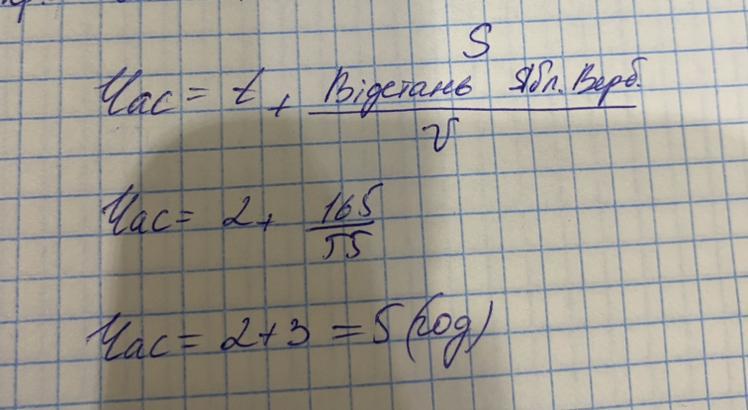 S
Час = t + Відстань Ябл. Верб.
v
Час = 2 + 165
55
Час = 2+3 = 5 (год)